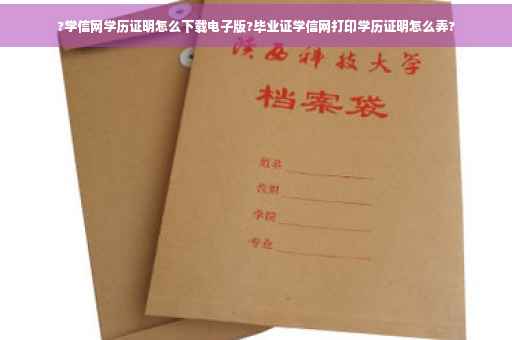 ?学信网学历证明怎么下载电子版?毕业证学信网打印学历证明怎么弄?
陕西科技大学
档案袋
姓名
学院
专业